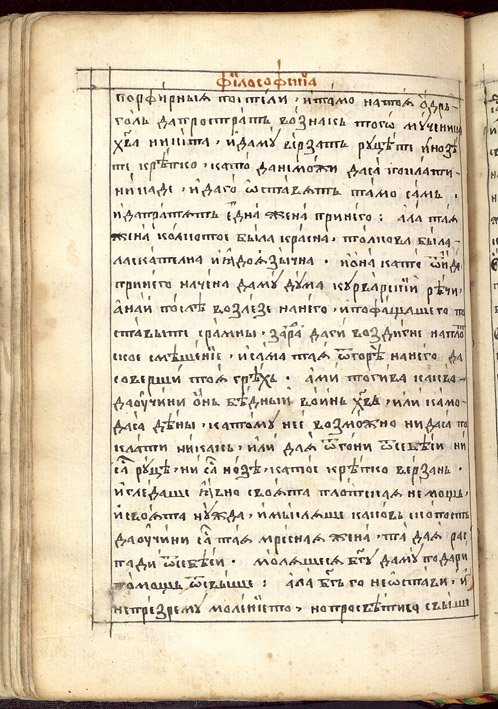 філософїа
порфирныѧ постели , и тамо на тоѧ ѻдръ
голь да прострать возна́къ того̀ мученика
хв҃а никита , и да мꙋ вѣрзатъ рꙋцѣте и нозѣ
те крѣпко , като да не можи да са поклати
никаде , и да го ѡставѧтъ тамо самь .
и да пратѧтъ една жена при него : ала таѧ
жена колкото была красна , толкова была
ласкателна и ѕлоѧзычна . и она като ѿиде
при него начена да мꙋ дꙋма кꙋрварскїй рѣчи ,
а най послѣ возлезе на него , и пофащаше го по
ставыте срамны , зара да ги воздигне на пло
ское смѣшенїе , и сама таѧ ѿгорѣ на него да
соверши тоѧ грѣхь . ами тогива какво
да ѹчини ѻнь бѣдный воинь хв҃ъ , или камо
да са дѣны , като мꙋ нее возможно ни да са по
клати никакъ , или да ѧ ѿгони ѿ себѣси ни
са рꙋцѣ , ни са нозѣ , катое крѣпко верзань .
и гледаше ꙗвно своѧта плотскаѧ немощь ,
и своѧта нꙋжда , и мыслѧше каковь способъ
да ѹчини са таѧ мрасна жена , та да ѧ рас
пади ѿ себѣси . молѧшесѧ бг҃ꙋ да мꙋ подари
помощь ѿ выше : ала бг҃ъ го не ѡстави , и
не презре мꙋ моленїето , но просвѣти го свыше